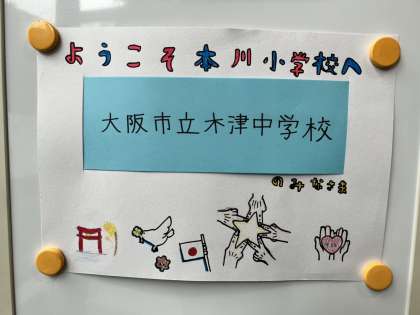 ようこそ本川小学校へ
大阪市立木津中学校
のみなさま